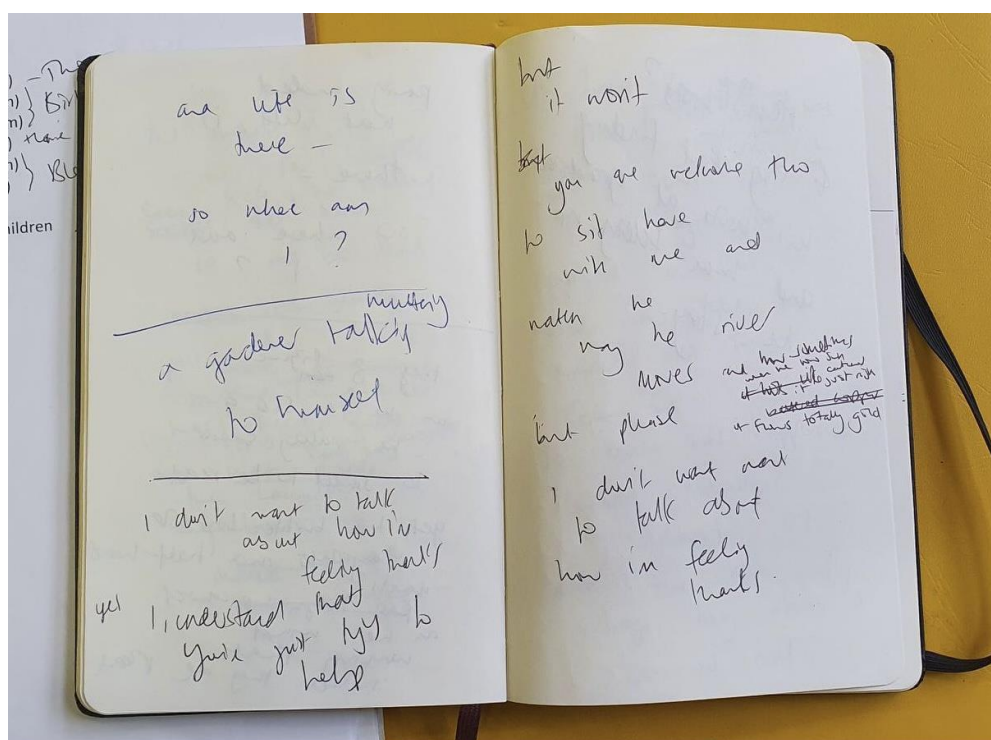 – The
Bir
Ble
ildren
and life is
there –
so where am
I ?
muttering
a gardener talking
to himself
I don't want to talk
about how im
feeling thanks
yes I understand that
you're just trying to
help
but
it won't
but
you are welcome tho
to sit here
with me and
watch the
way the river
moves and how sometimes
when the
it just right
it flows totally gold
but please
I don't want
to talk about
how im feeling
thanks.